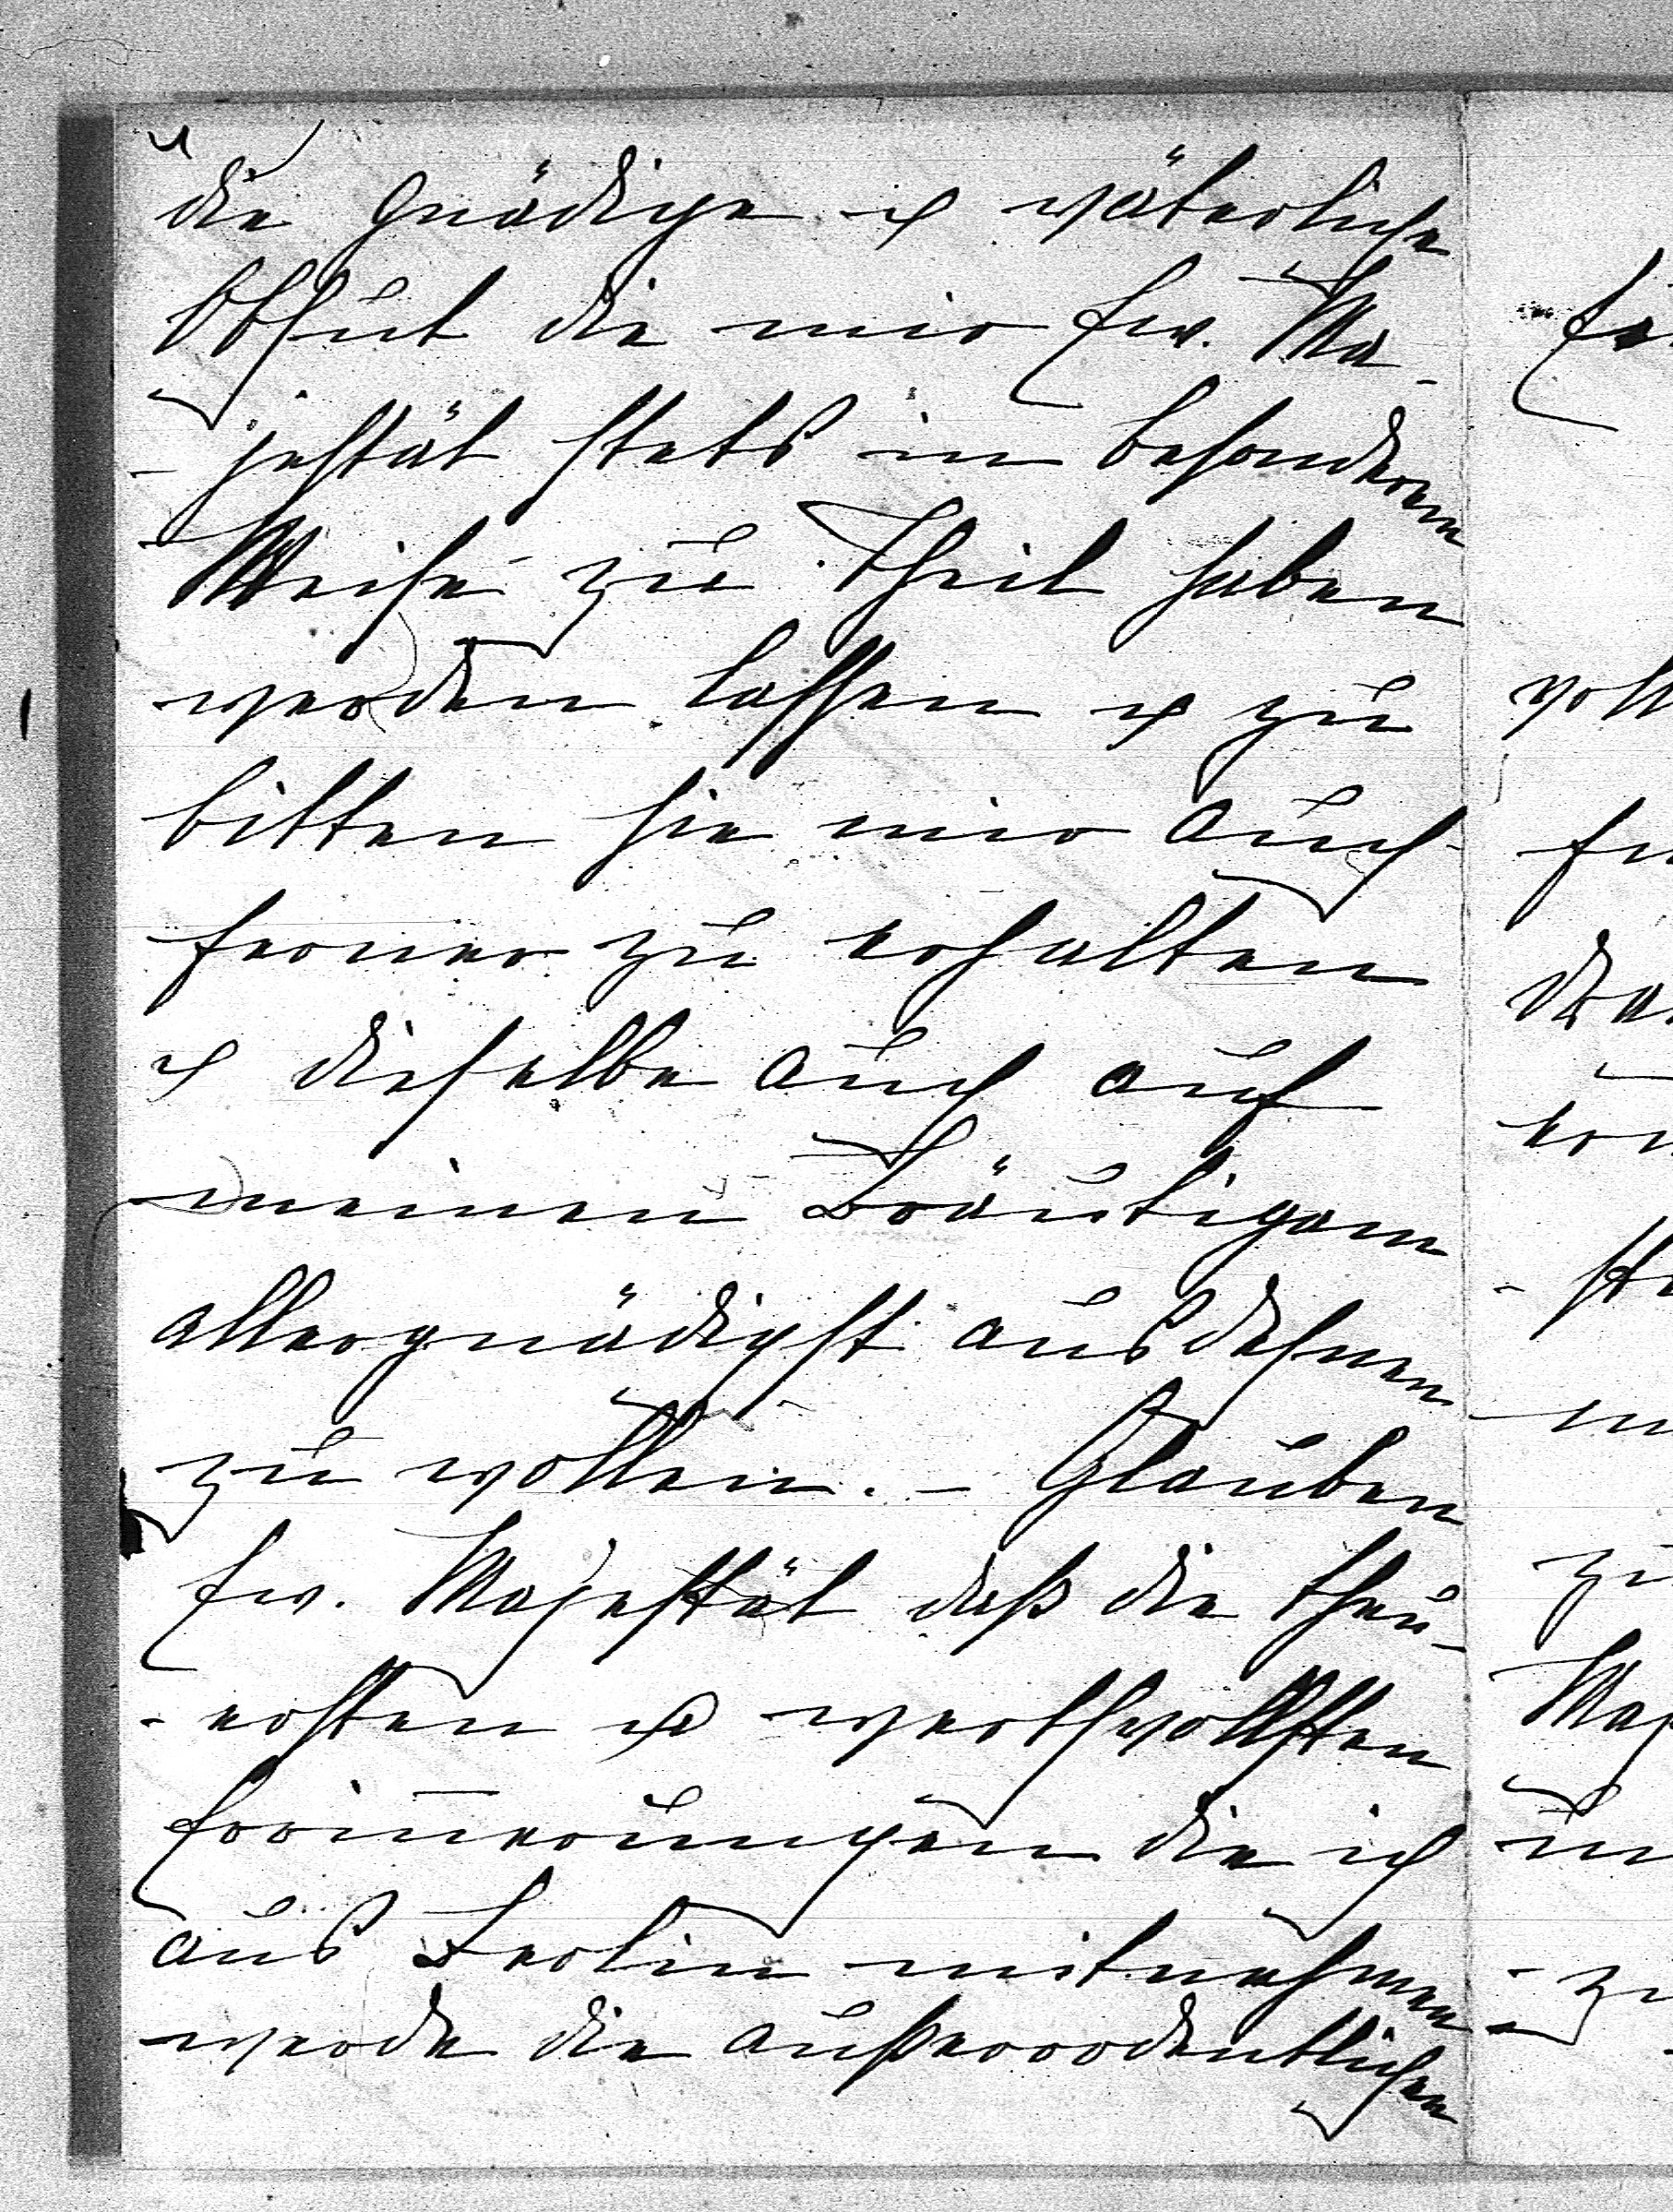 die gnädige u väterliche
Obhut die mir Ew. Ma-
-jestät stets in besonderem
Weise zu Theil haben
werden lassen u zu
bitten sie mir auch
ferner zu erhalten
u dieselbe auch auf
meinen Bräutigam
allergnädigst ausdehnen
zu wollen. - Glauben
Ew. Majestät daß die theu-
-ersten u werthvollsten
Erinnerungen die ich
aus Berlin mitnehmen
werde die außerordentlichen